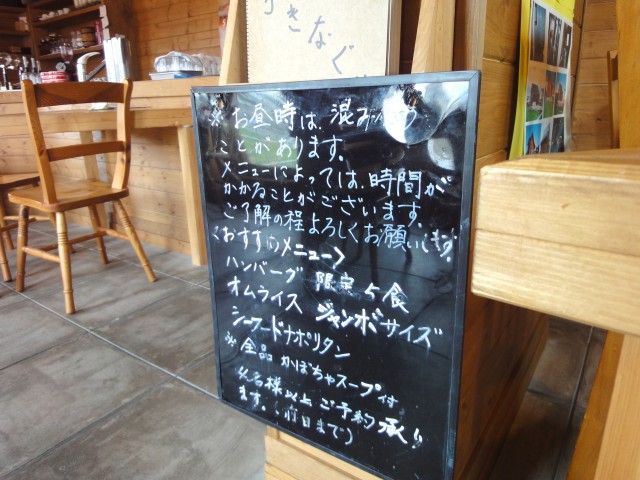 きまなぐ
※お昼時は、混み合う
ことがあります。
メニューによっては、時間が
かかることがございます。
ご了解の程よろしくお願いします。
<おすすめメニュー>
ハンバーグ 限定5食
オムライス ジャンボサイズ
シーフードナポリタン
※全品かぼちゃスープ付
名様以上ご予約承り
ます。(前日まで)